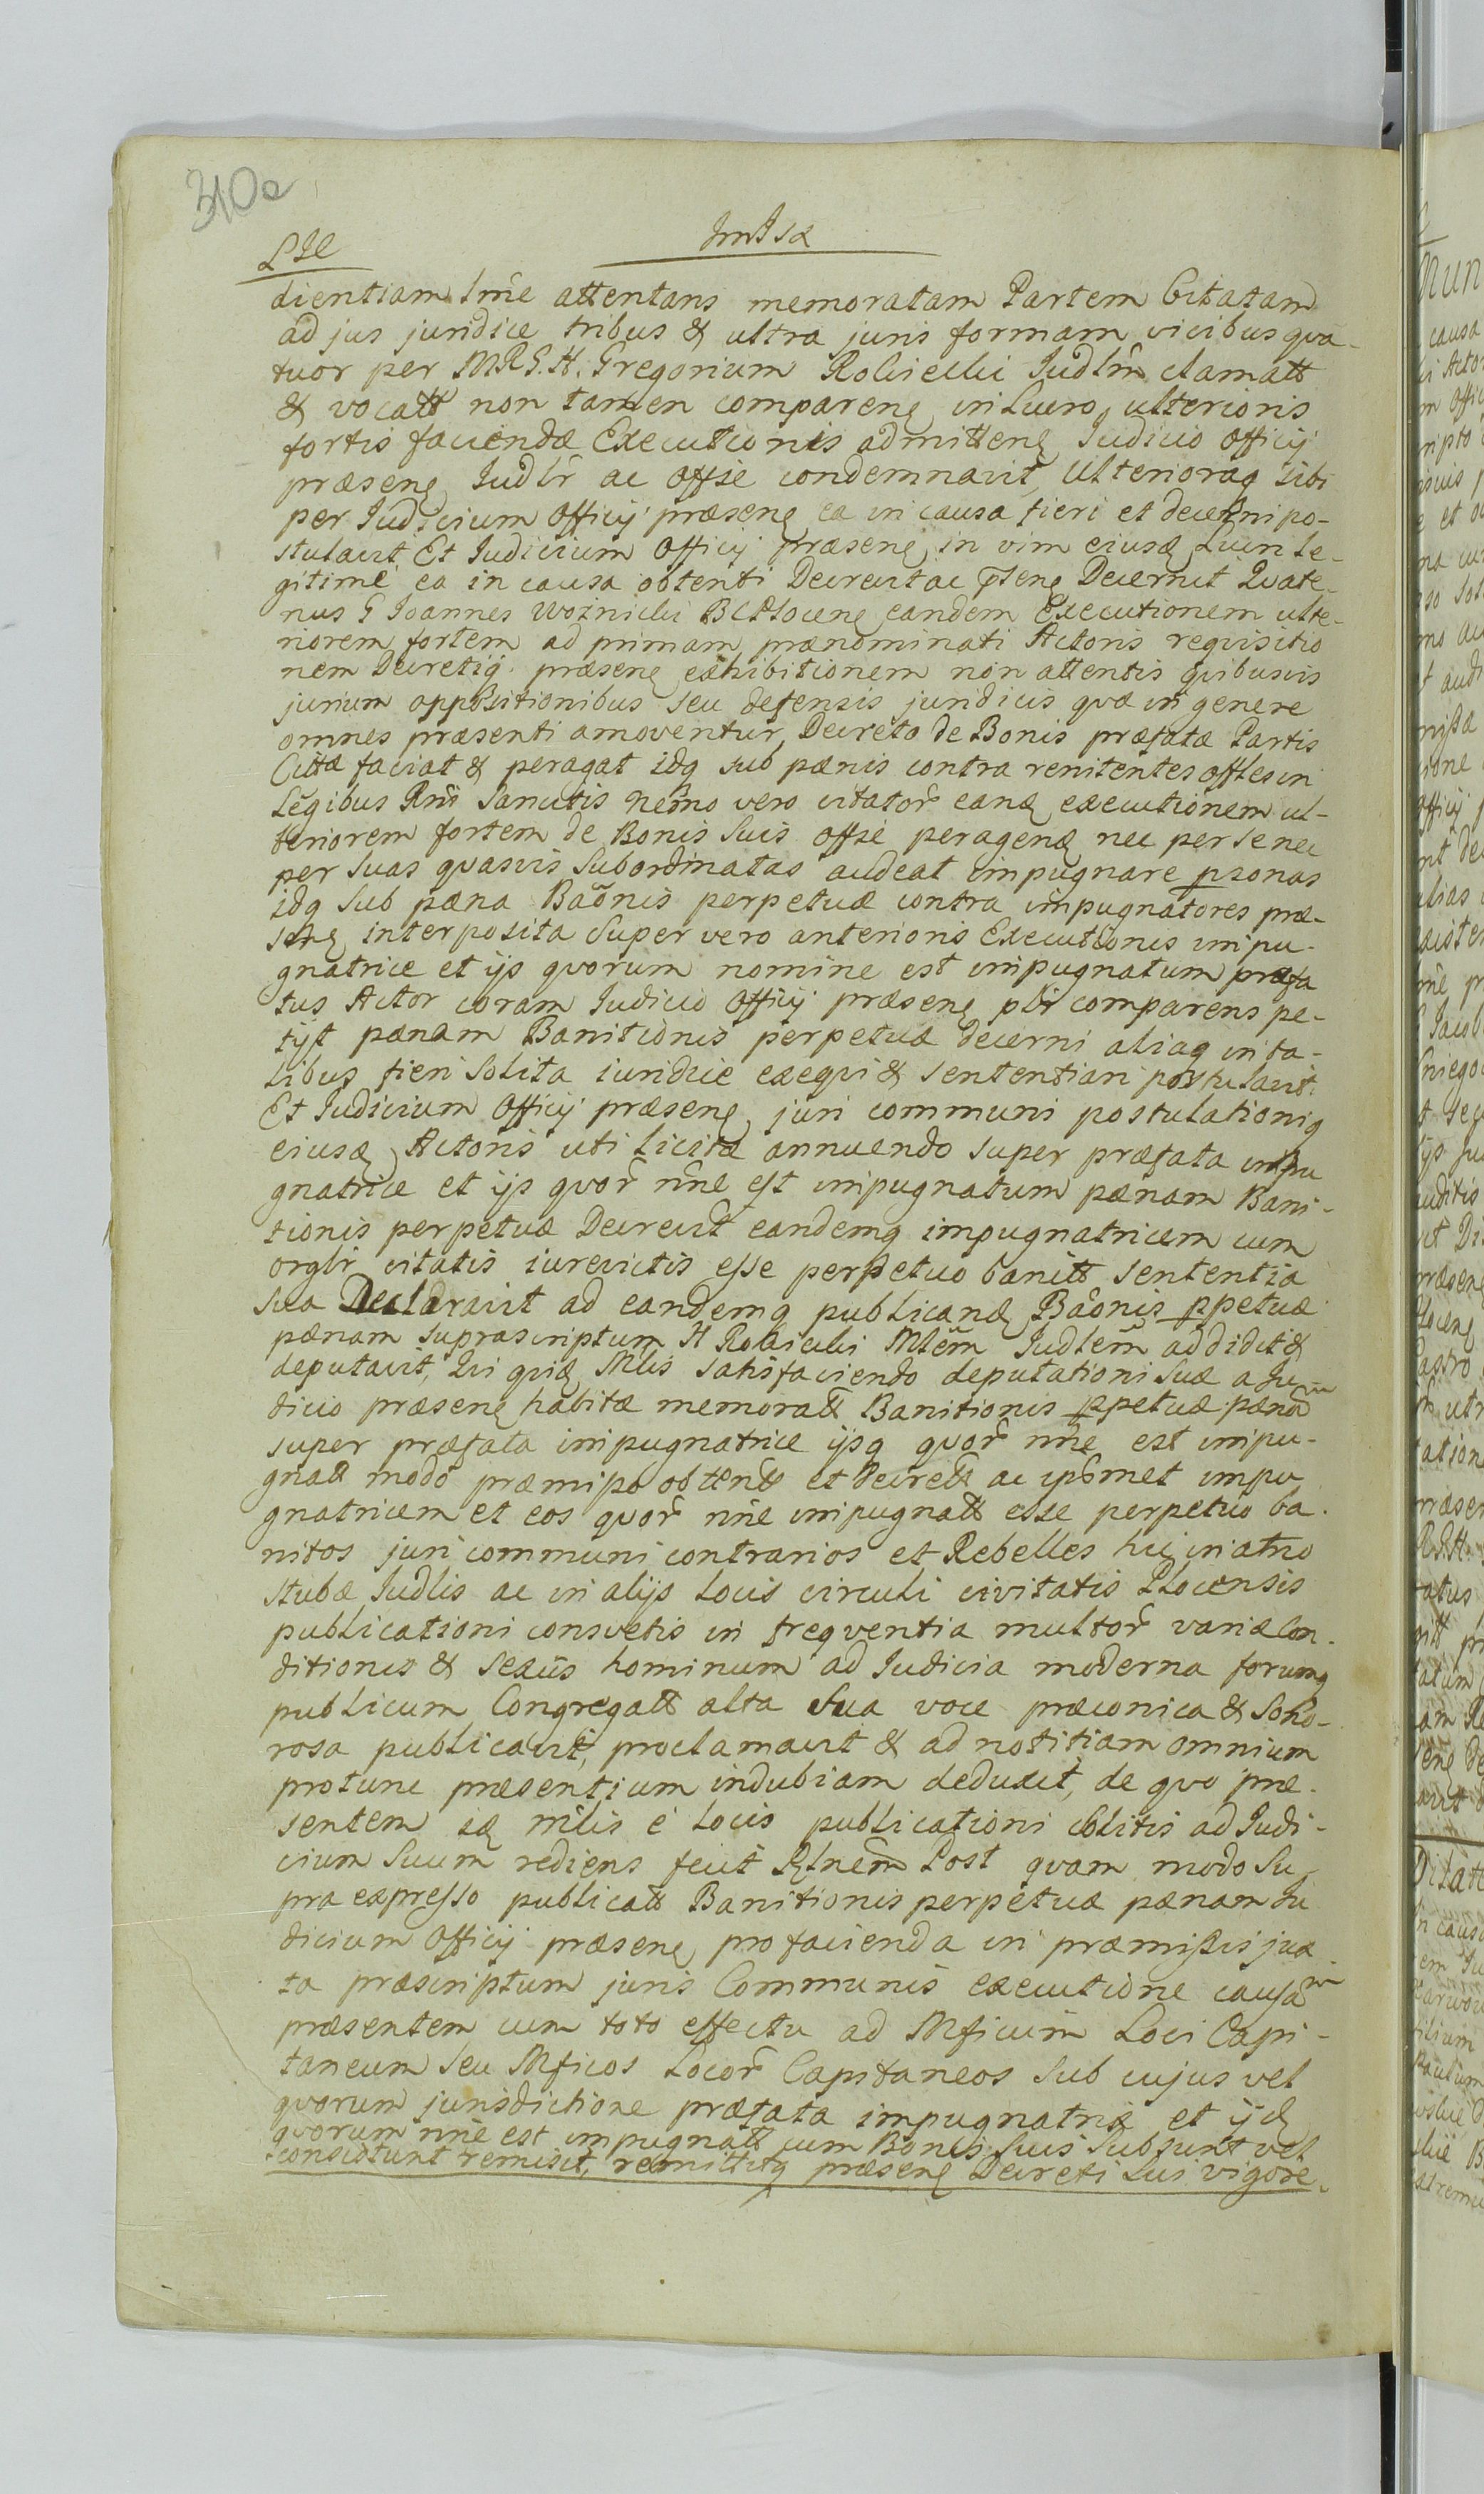 310a
dientiam lmẽ attentans memoratam Partem Citatam
ad jus juridice tribus & ultra juris formam vicibus qva-
tuor per MRGH. Gregorium Rolirecki Judlm̃ clamatt
& vocatt non tamen comparenȩ in Lucro ulterioris
fortis faciendæ Executionis admittenȩ Iudicio Officij
præsenȩ Judlr̃ ac offse condemnavit, Ulterioraq sibi
per Iudicium Officij præsenȩ ea in causa fieri et decerni po-
stulavit Et Iudicium Officij præsenȩ in vim eiusȩ Lucri le-
gitime ea in causa obtenti Decrevit ac pszenȩ Decernit Qvate-
nus G Ioannes Woźnicki BCPlocenȩ eandem Executionem ulte-
riorem fortem ad primam prænominati Actoris reqvisitio
nem Decretiq præsenȩ exhibitionem non attentis qvibusvis
jurium oppositionibus seu defensis juridicis qvæ in genere
omnes præsenti amoventur Decreto de Bonis præfatæ Partis
Cittæ faciat & peragat idq sub pænis contra renitentes offles in
Legibus Rni Sancitis nemo vero citator̃ eanȩ executionem ul-
teriorem fortem de Bonis Suis offse peragenȩ nec per se nec
per suas qvasvis Subordinatas audeat impugnare psonas
idq Sub pæna Baõnis perpetuæ contra impugnatores præ-
senȩ interposita Super vero anterioris Executionis impu-
gnatrice et ijs qvorum nomine est impugnatum præfa
tus Actor coram Iudicio Officij præsenȩ plr comparens pe-
tijt pænam Banitionis perpetuæ decerni aliaq in ta-
libus fieri Solita iuridice exeqvi & sententiari postulavit.
Et Iudicium Officij præsenȩ juri communi postulationiq
eiusȩ Actoris uti licitæ annuendo super præfata impu
gnatrice et ijs qvor̃ nñe est impugnatum pænam Bani-
tionis perpetuæ Decrevit eandemq impugnatricem cum
orglr citatis iurevictis esse perpetuo banitt sententia
sua Declaravit ad eandemq publicanȩ Bãonis ppetuæ
pænam suprascriptum H Rolirecki Mlem̃ Judlem̃ addidit &
deputavit, Qvi qvidȩ Mlis satisfaciendo deputationi suæ a Ju
dicio præsenȩ habitæ memoratt Banitionis ppetuæ pænam
super præfata impugnatrice ijsq qvor̃ nñe est impu-
gnatt modo præmisso obtentt et decrett ac ipsmet impu
gnatricem et eos qvor̃ nñe impugnatt esse perpetuo ba-
nitos juri communi contrarios et Rebelles hic in atrio
stubæ Judlis ac in alijs locis circuli civitatis Plocensis
publicationi consvetis in freqventia multor̃ variæ Con-
ditionis & sexûs hominum ad Iudicia moderna forumq
publicum Congregatt alta sua voce præconica & sono-
rosa publicavit, proclamavit & ad notitiam omnium
protunc præsentium indubiam deduxit, de qvo præ-
sentem idȩ mlis e locis publicationi solitis ad Judi-
cium Suum rediens fecit Rlnem̃ Post qvam modo Su
pra expresso publicatt Banitionis perpetuæ pænam Ju
dicium Officij præsenȩ pro facienda in præmissis jux
ta præscriptum juris Communis executione causam
præsentem cum toto effectu ad Mficum Loci Capi-
taneum seu Mficos Locor̃ Capitaneos sub cujus vel
qvorum jurisdictione præfata impugnatrix et ijȩ
qvorum nñe est impugnatt cum Bonis Suis subsunt vel
consistunt remisit, remittitq præsenȩ Decreti sui vigore.